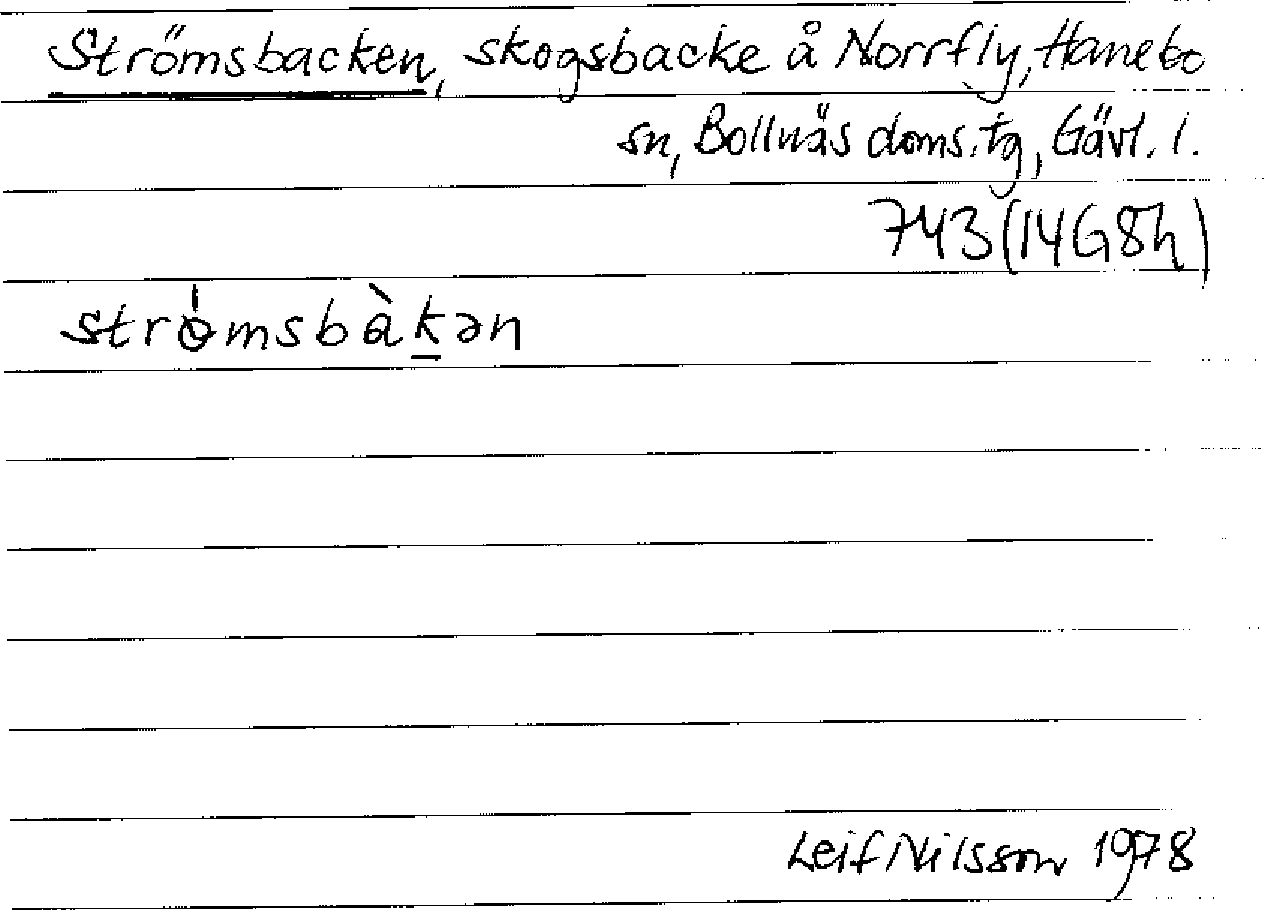 Strömsbacken, skogsbacke å Norrfly, Hanebo
sn, Bollnäs doms. tg, Gävl. l.
743 (14G8h)
strɵ̍msbàk̲ən
Leif Nilsson 1978